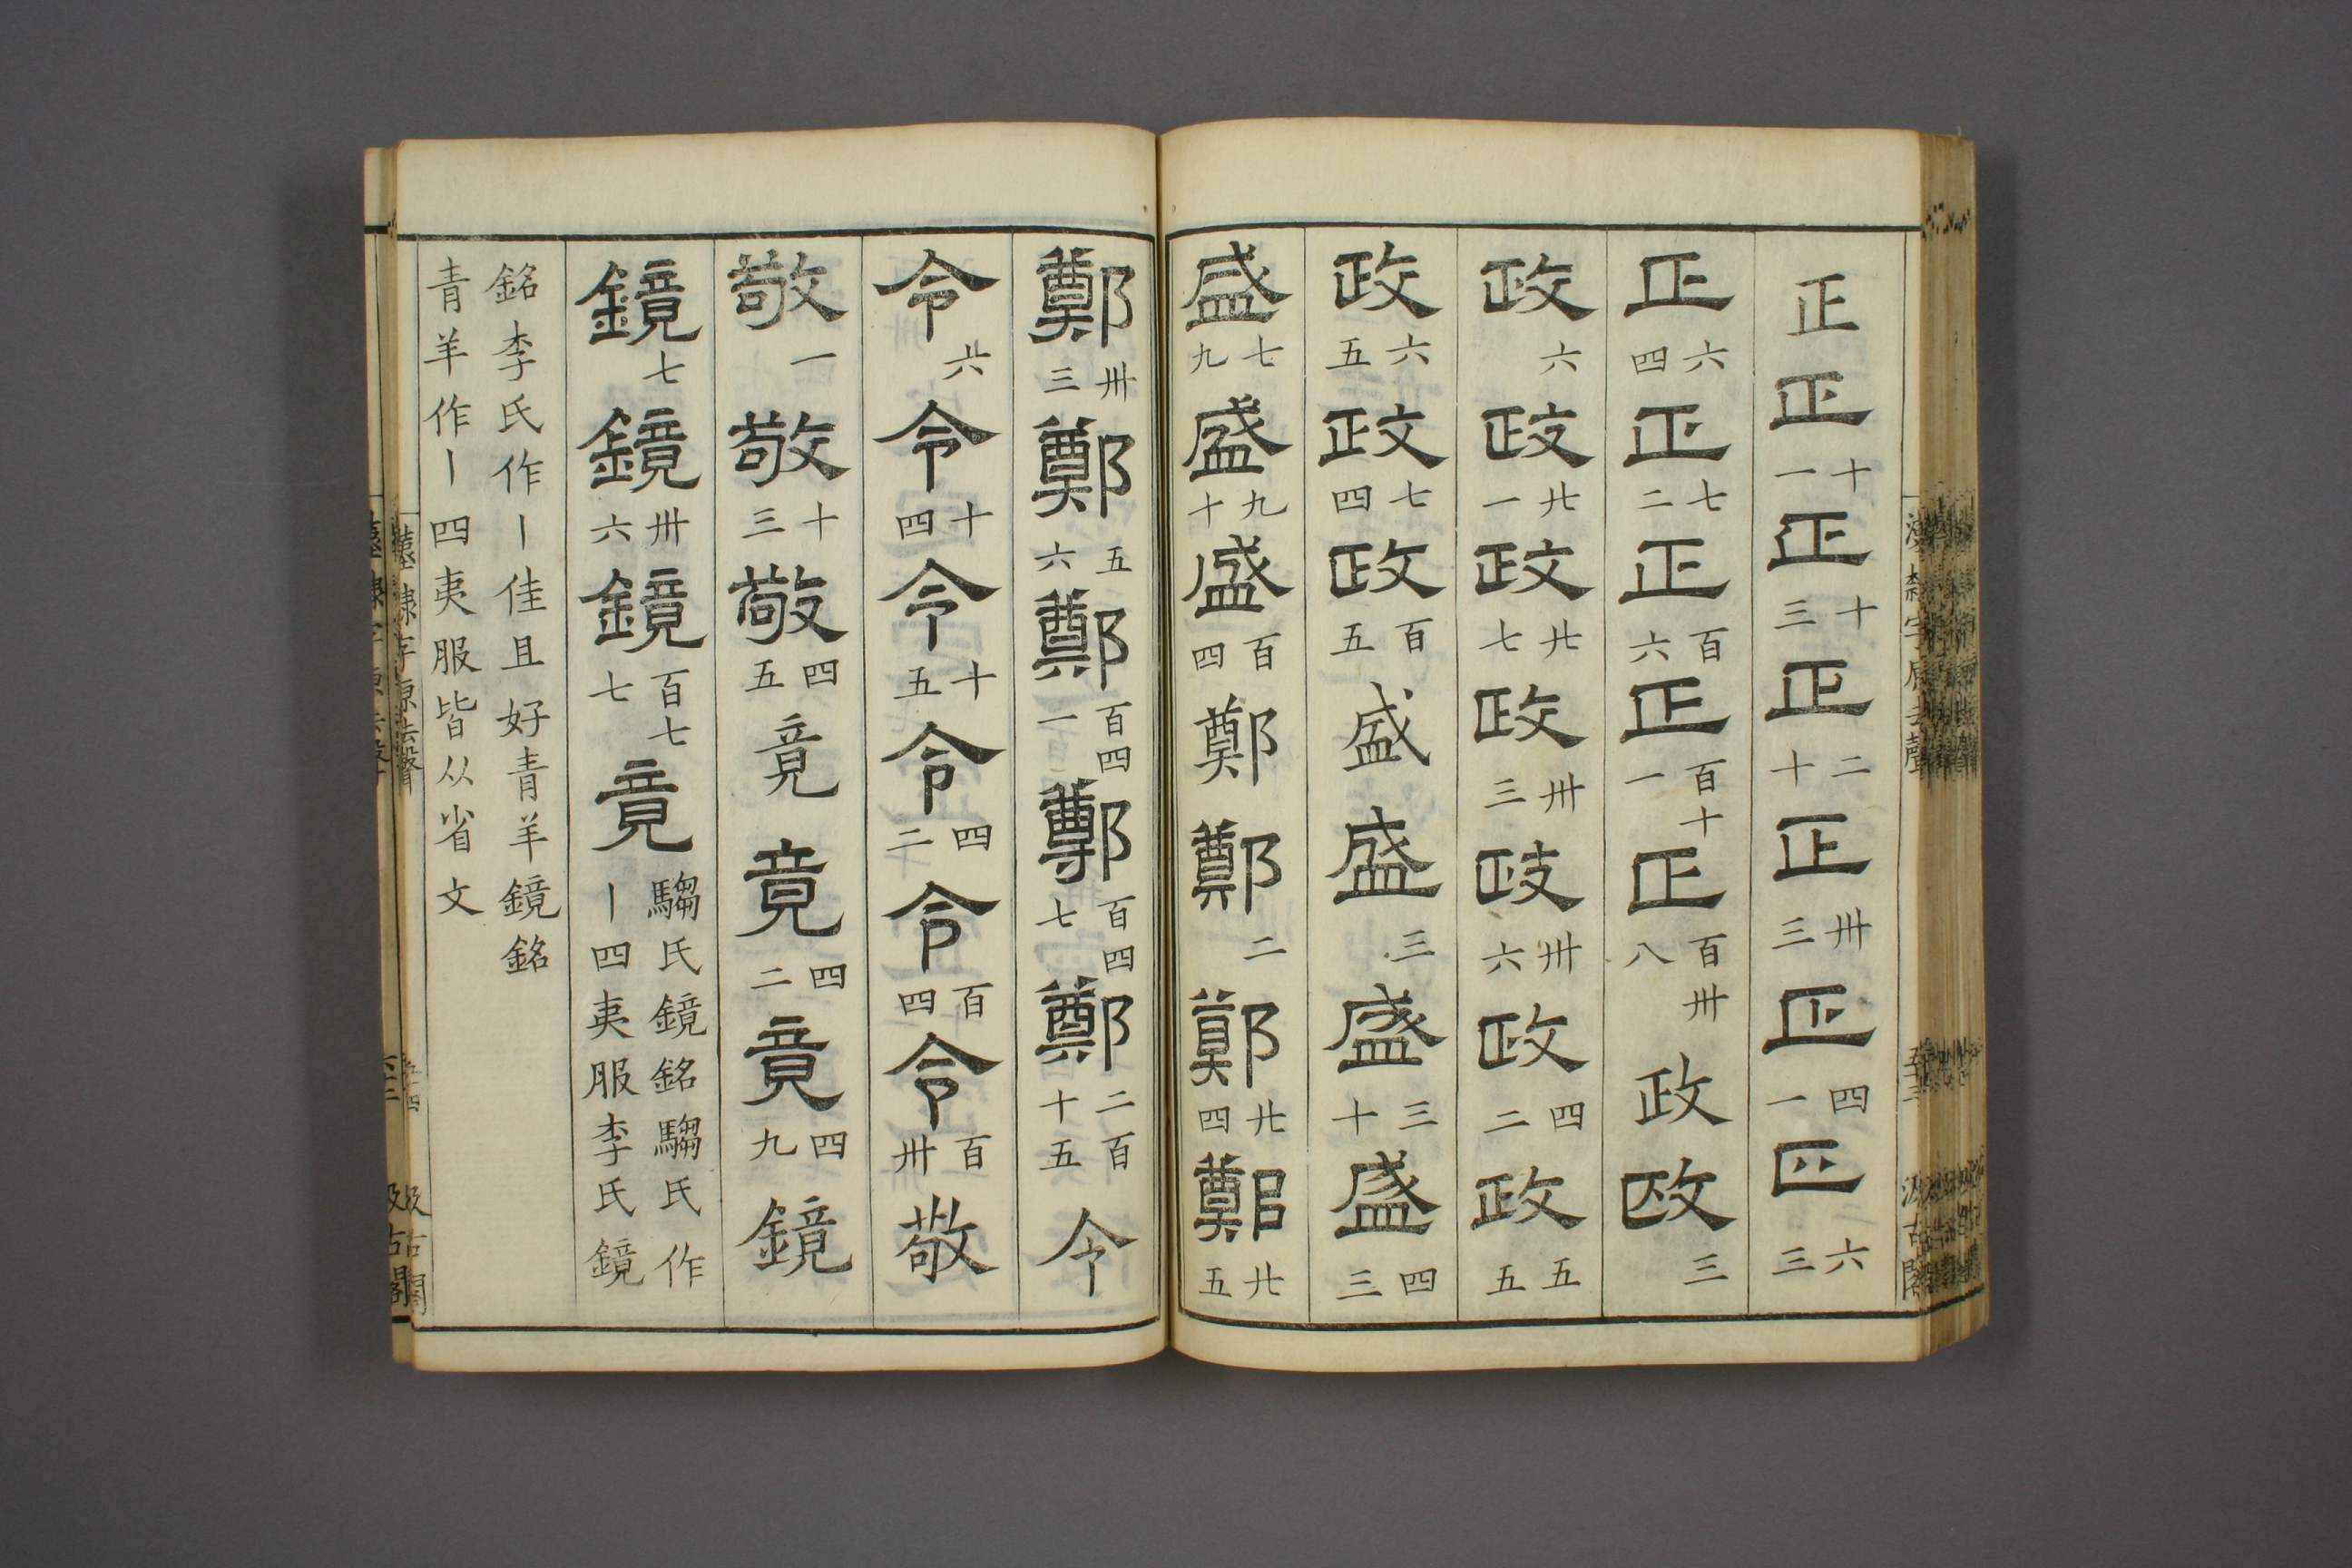 正 正 十一 正 十三 正 二十 正 卅三 正 四一 正 六三
正 六四 正 七二 正 百六 正 百十一 正 百卅八 政 政 三
政 六 政 廿一 政 廿七 政 卅三 政 卅六 政 四二 政 五五
政 六五 政 七四 政 百五 盛 盛 三 盛 三十 盛 四三
盛 七九 盛 九十 盛 百四 鄭 鄭 二 鄭 廿四 鄭 廿五
鄭 卅三 鄭 五六 鄭 百四一 鄭 百四七 鄭 二百十五 令
令 六 令 十四 令 十五 令 四二 令 百四 令 百卅 敬
敬 一 敬 十三 敬 四五 竟 竟 四二 竟 四九 鏡
鏡 七 鏡 卅六 鏡 百七七 竟 騶氏鏡銘騶氏作丨四夷服李氏鏡
銘李氏作丨佳且好青羊鏡銘
青羊作丨四夷服皆从省文
漢隸字原去聲 五十三 汲古閣
漢隸字原去聲 五十四 汲古閣